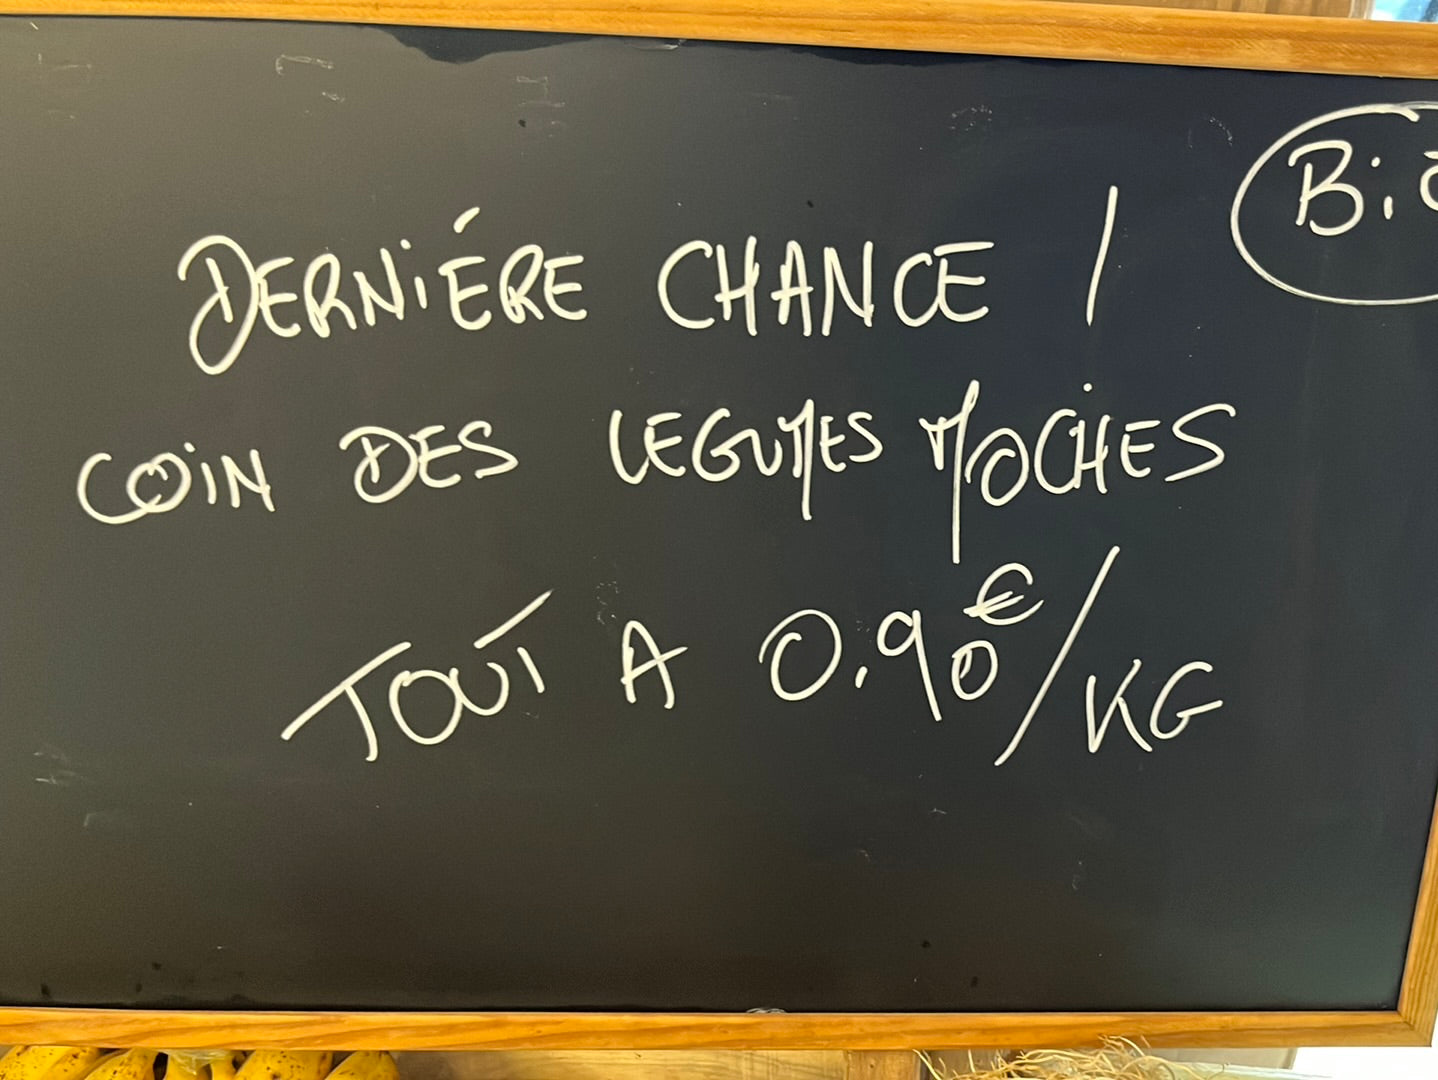 BiO
DERNiÉRE CHANCE !
COiN DES LEGUMES MOCHES
TOUT A 0.90€/KG